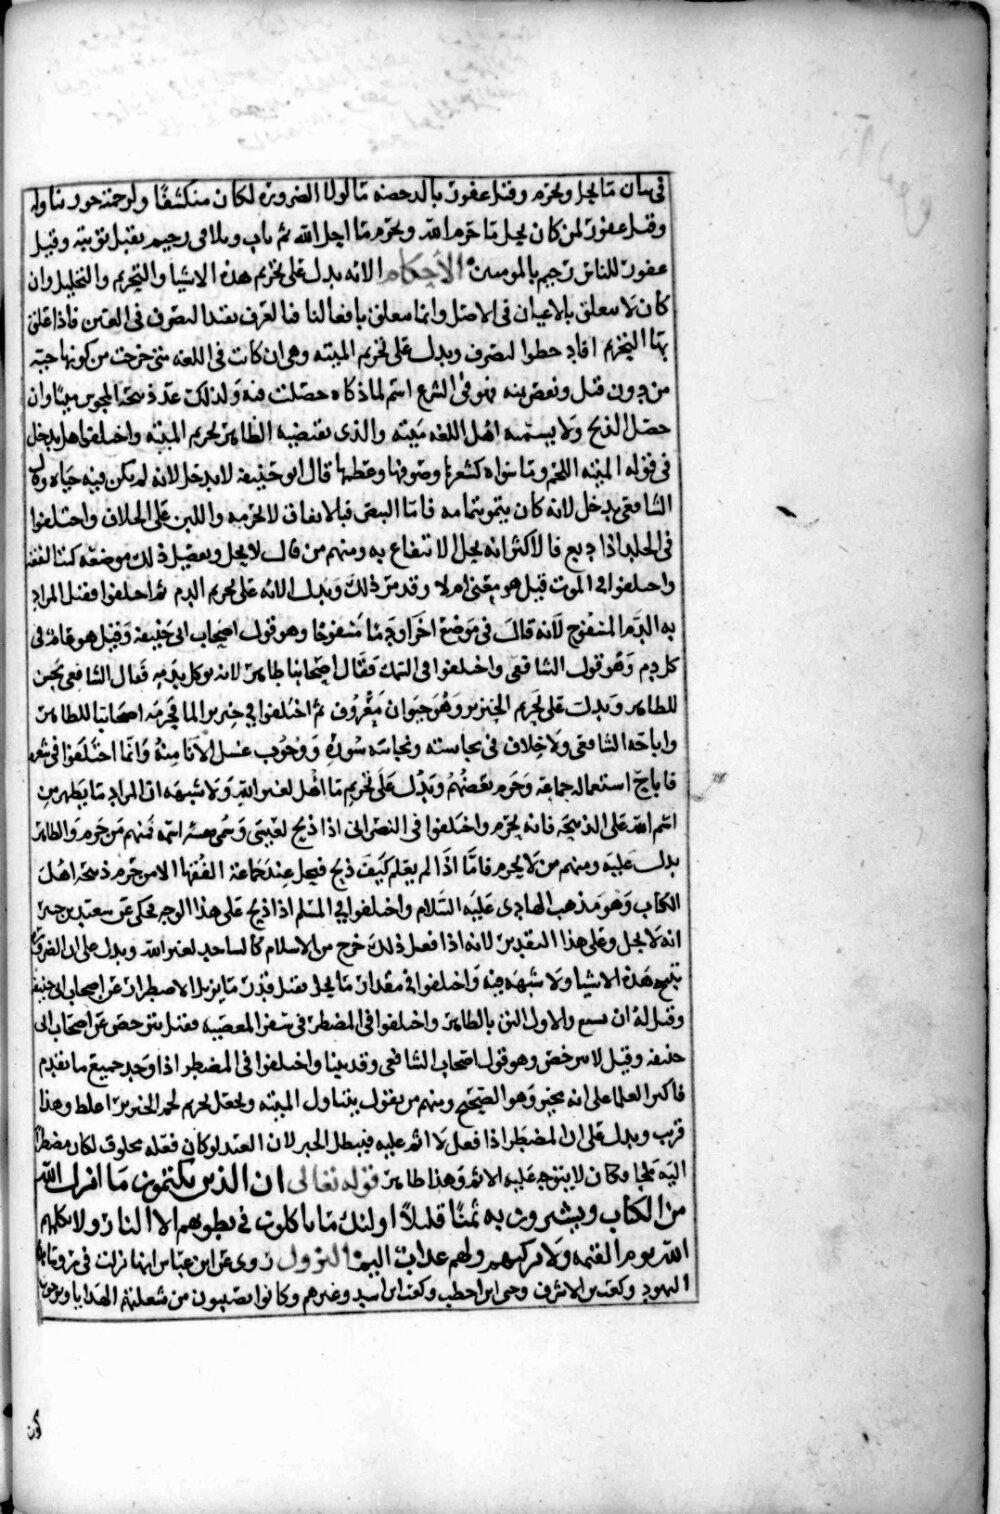 في بيان ما يحل ويحرم وقيل غفور بالرخصة ما لولا الضرورة لكان منكشفا ولرحمته جوز تناوله
وقيل غفور لمن كان يحل ما حرم الله ويحرم ما احل الله ثم تاب وتلافى رحيم يقبل توبته وقيل
غفور للناس رحيم بالمومنين الاحكام الاية يدل على تحريم هذه الاشيا والتحريم والتحليل وان
كان لا يتعلق بالاعيان في الاصل وانما يتعلق بافعالنا فالعرف يفيد التصرف في العين فاذا علق
بها التحريم افاد حظر التصرف ويدل على تحريم الميتة وهي ان كانت في اللغة متى خرجت من كونها حية
من دون قتل ونقض بنية فهو في الشرع اسم لما ذكاة حصلت فيه ولذلك عد ذبيحة المجوس ميتا وان
حصل الذبح ولا يسميه اهل اللغة ميتة والذي يقتضيه الظاهر تحريم الميتة واختلفوا هل يدخل
في قوله الميتة اللحم وما سواه كشعرها وصوفها وعظمها قال ابو حنيفة لا يدخل لانه لم يكن فيه حياة وقال
الشافعي يدخل لانه كان ينمو بنمائه فاما البيض فبالاتفاق لا يحرم واللبن على الخلاف واختلفوا
في الجلد اذا دبغ فالاكثر انه يحل الانتفاع به ومنهم من قال لا يحل وتفصيل ذلك موضعه كتب الفقه
واختلفوا في الموت قيل هو معنى ام لا وقد مر ذلك ويدل الاية على تحريم الدم ثم اختلفوا فقيل المراد
به الدم المسفوح لانه قال في موضع اخر او دما مسفوحا وهو قول اصحاب ابي حنيفة وقيل هو عام في
كل دم وهو قول الشافعي واختلفوا في السمك فقال اصحابنا طاهر لانه يوكل بدمه فقال الشافعي نجس
للظاهر ويدل على تحريم الخنزير وهو حيوان معروف ثم اختلفوا في خنزير الما فحرمه اصحابنا للظاهر
واباحه الشافعي ولا خلاف في نجاسته ونجاسة سوره ووجوب غسل الانا منه وانما اختلفوا في شعره
فاباح استعماله جماعة وحرم بعضهم ويدل على تحريم ما اهل لغير الله ولا شبهة ان المراد ما يظهر من
اسم الله على الذبيحة فانه يحرم واختلفوا في النصراني اذا ذبح لعيسى وسمى اسمه فمنهم من حرم والظاهر
يدل عليه ومنهم من لا يحرم فاما اذا لم يعلم كيف ذبح فيحل عند جماعة الفقها الا من حرم ذبيحة اهل
الكتاب وهو مذهب الهادي عليه السلام واختلفوا في المسلم اذا ذبح على هذا الوجه فحكي عن سعيد بن جبير
انه لا يحل وعلى هذا التقدير لانه اذا فعل ذلك خرج من الاسلام كالساجد لغير الله ويدل على ان الضرورة
تبيح هذه الاشيا ولا شبهة فيه واختلفوا في مقدار ما يحل فقيل قدر ما يزيل الاضطرار عن اصحاب ابي حنيفة
وقيل له ان يشبع والاول اليق بالظاهر واختلفوا في المضطر في سفر المعصية فقيل يترخص عن اصحاب ابي
حنيفة وقيل لا يترخص وهو قول اصحاب الشافعي وقد بينا واختلفوا في المضطر اذا وجد جميع ما تقدم
فاكثر العلما على انه مخير وهو الصحيح ومنهم من يقول يتناول الميتة ويجعل تحريم لحم الخنزير اغلظ وهذا
قريب ويدل على ان المضطر اذا فعل لا اثم عليه فيبطل الجبر لان العبد لو كان فعله مخلوق لكان مضطرا
اليه ملجا وكان لا يتوجه عليه الاثم وهذا ظاهر قوله تعالى ان الذين يكتمون ما انزل الله
من الكتاب ويشترون به ثمنا قليلا اولئك ما ياكلون في بطونهم الا النار ولا يكلمهم
الله يوم القيمة ولا يزكيهم ولهم عذاب اليم النزول روي عن ابن عباس انها نزلت في روسا
اليهود وكعب بن الاشرف وحيي ابن اخطب وكعب ابن اسيد وغيرهم وكانوا يصيبون من سفلتهم الهدايا ويرجون
كون